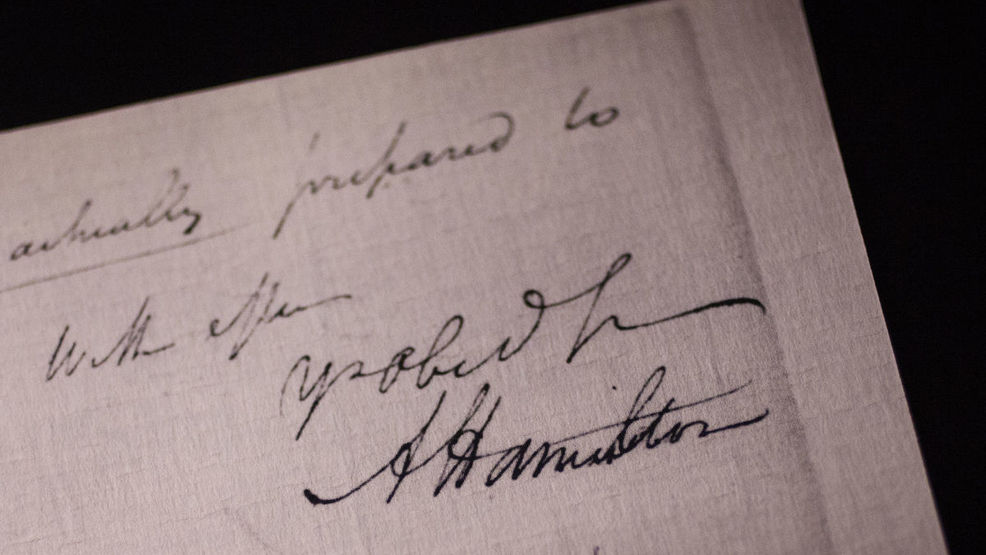 actually prepared to
With esteem
Yr Obed Sr
A Hamilton